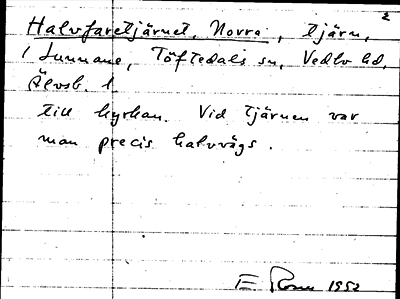 2
Halvfaretjärnet, Norra, tjärn,
i Lunnane, Töftedals sn, Vedbo hd,
Älvsb. l
till kyrkan. Vid tjärnen var
man precis halvvägs.
E 1952